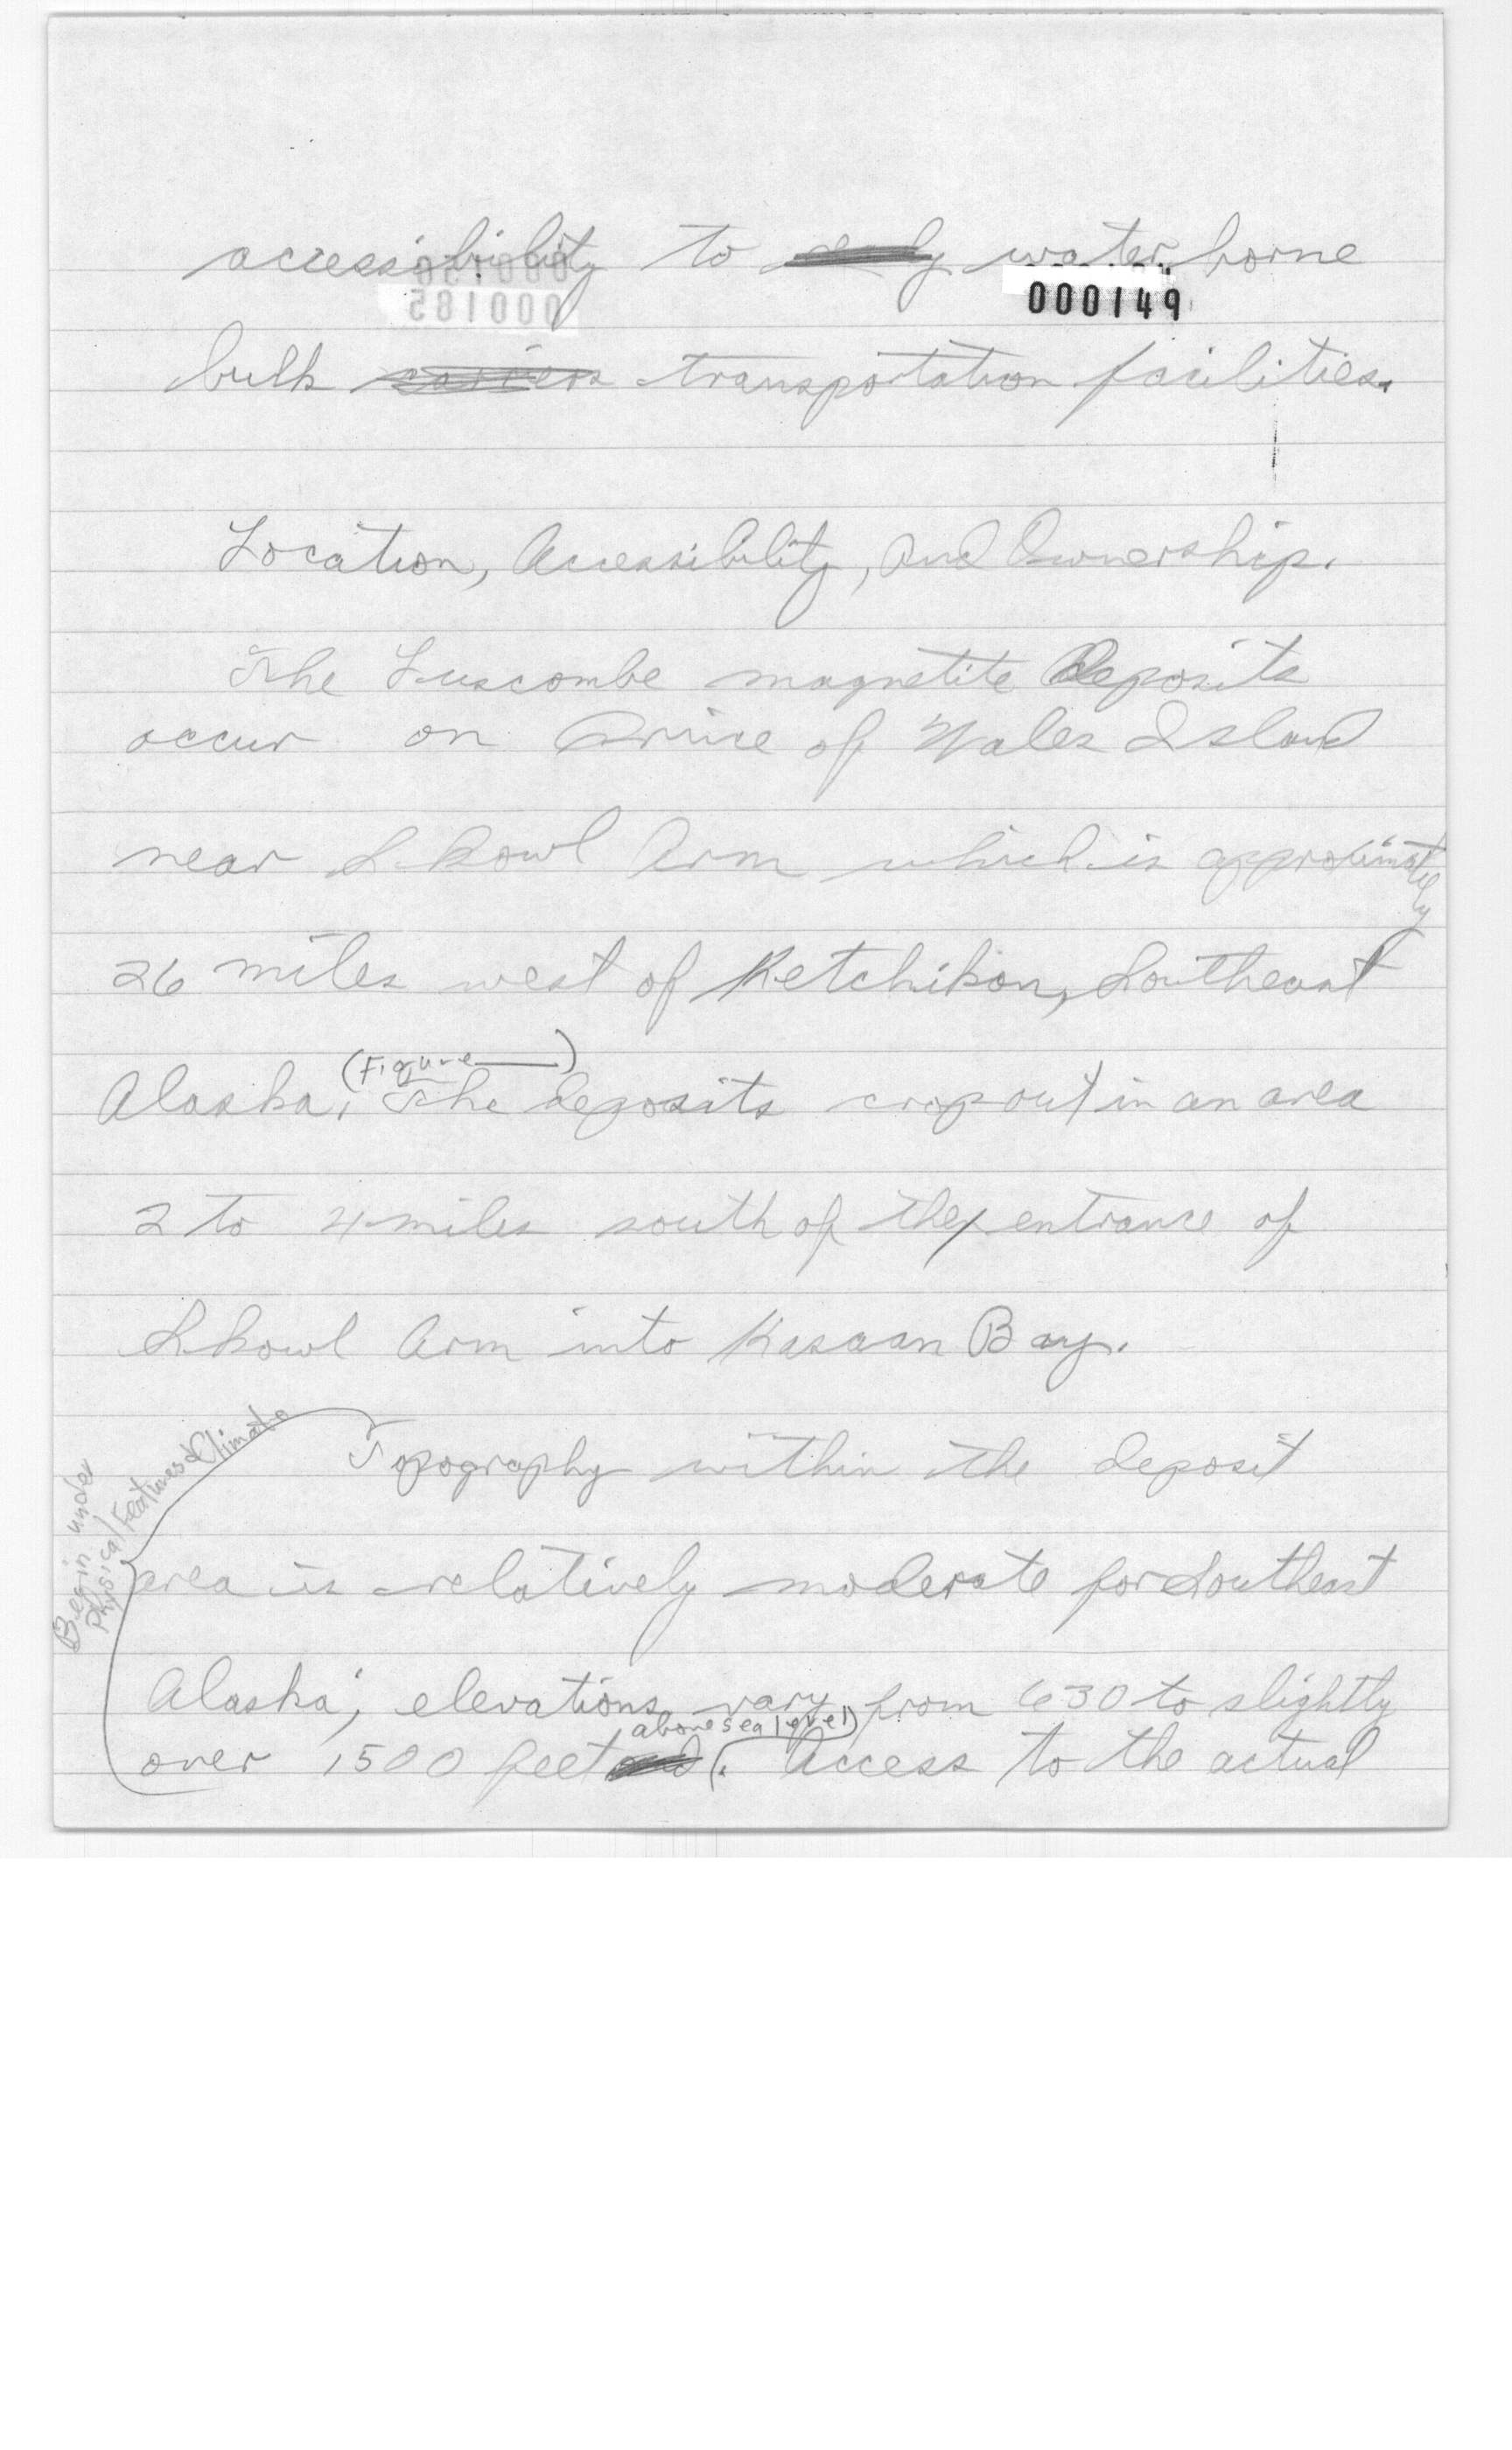 accessibility to water borne
000149
bulk transportation facilities.
Location, Accessibility, and Ownership.
The Luscombe magnetite deposits
occur on Prince of Wales Island
near Skowl Arm which is approximately
26 miles west of Ketchikan, Southeast
(Figure ___)
Alaska. The deposits crop out in an area
2 to 4 miles south of the entrance of
Skowl Arm into Kasaan Bay.
Begin under
Physical Features & Climate
Topography within the deposit
area is relatively moderate for Southeast
Alaska; elevations vary from 630 to slightly
above sea level
over 1500 feet. Access to the actual